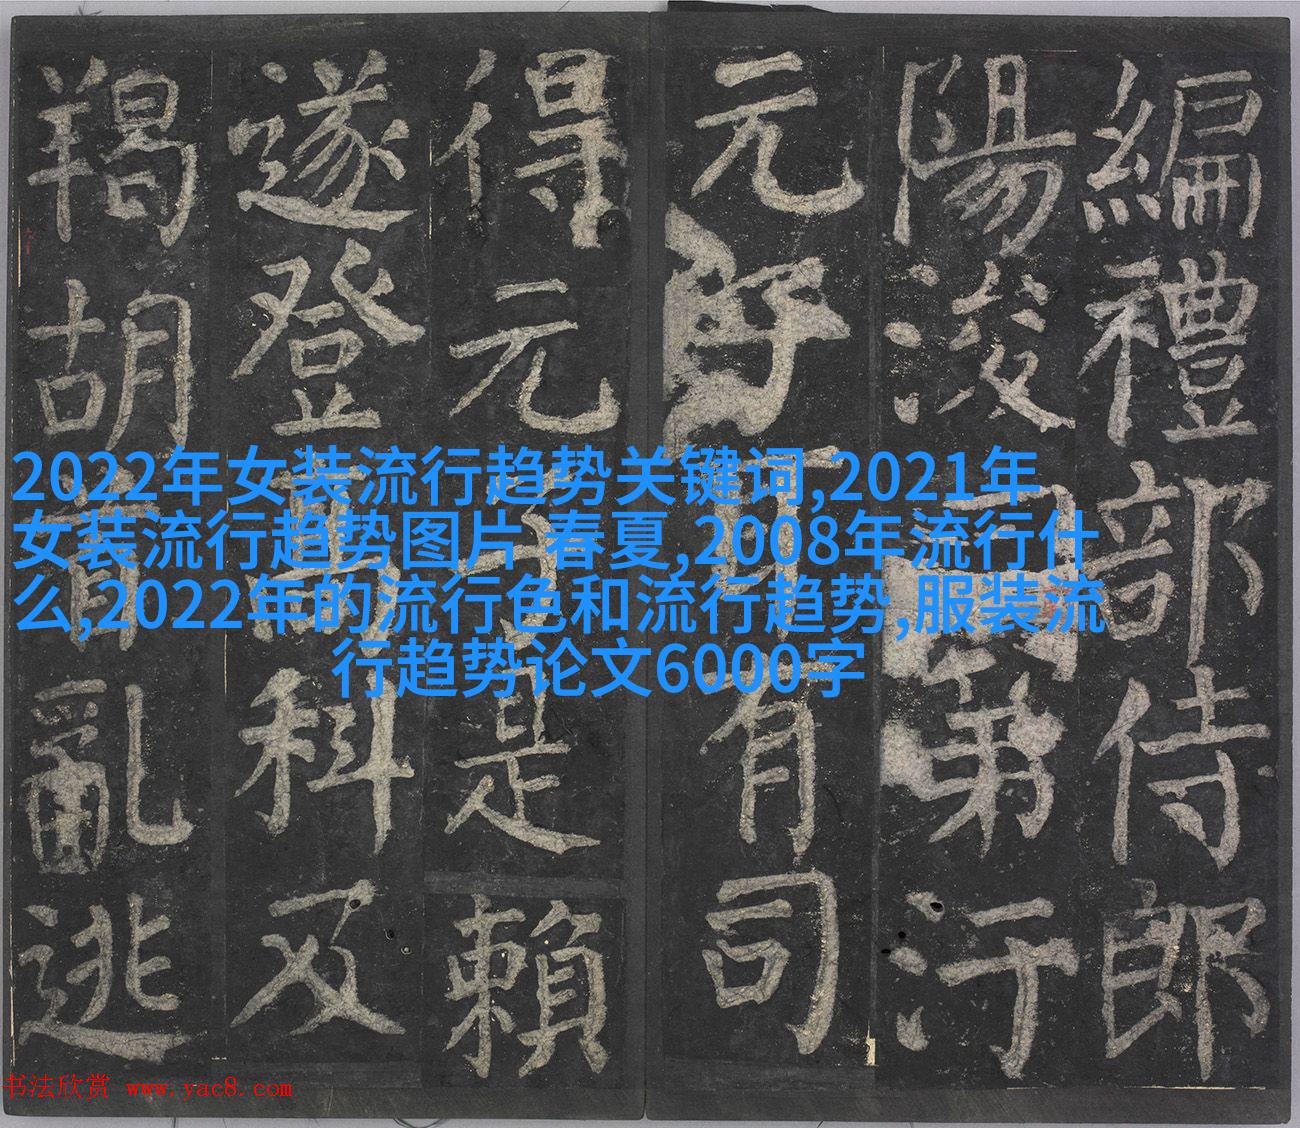 編禮部侍郎
陽浚曰第汙
元子耳有司
得元子是賴
遂登高科及
羯胡首亂逃
2022年女装流行趋势关键词,2021年
女装流行趋势图片 春夏,2008年流行什
么,2022年的流行色和流行趋势,服装流
行趋势论文6000字
书法欣赏 www.yac8.com